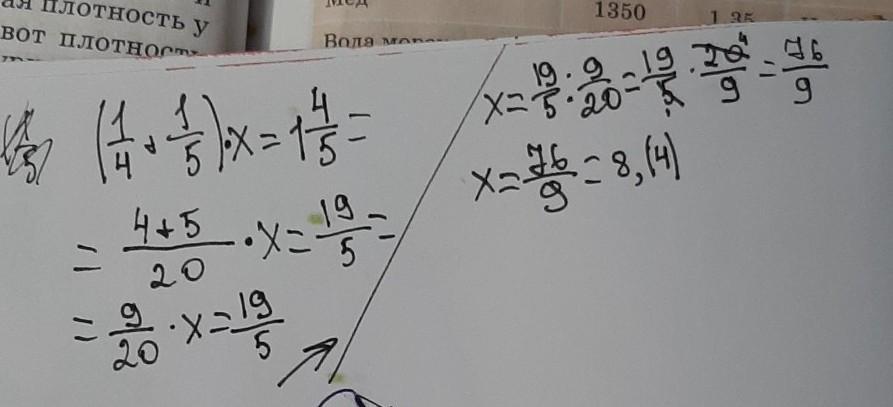 ая плотность у
вот плотность
Мёд
1350
Вода
(1/4 + 1/5) · x = 1 4/5 =
= (4+5)/20 · x = 19/5 =
= 9/20 · x = 19/5
x = 19/5 : 9/20 = 19/5 · 20/9 = 76/9
x = 76/9 = 8,(4)